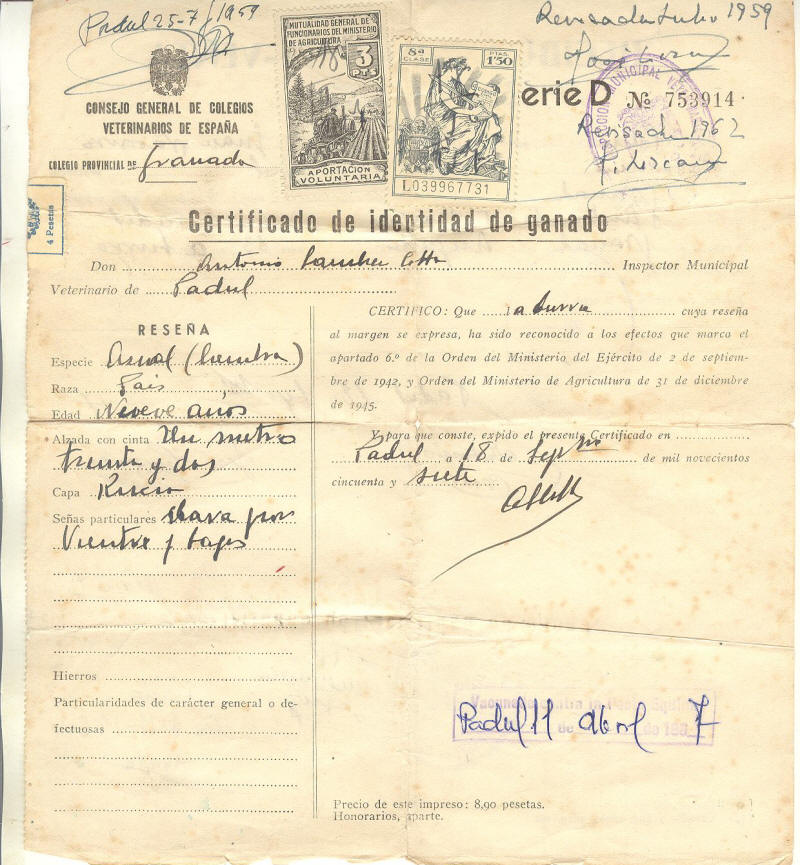 Padul 25-7/1959
Revisada Julio 1959
MUTUALIDAD GENERAL DE
FUNCIONARIOS DEL MINISTERIO
DE AGRICULTURA
3
PTS
APORTACION
VOLUNTARIA
8ª
CLASE
PTAS.
1'50
L039967731
erie D Nº 753914
Revisada 1962
CONSEJO GENERAL DE COLEGIOS
VETERINARIOS DE ESPAÑA
COLEGIO PROVINCIAL DE Granada
4 Pesetas
Certificado de identidad de ganado
Don Antonio Sanchez Inspector Municipal
Veterinario de Padul
RESEÑA
Especie Asnal (hembra)
Raza Pais
Edad Nueve años
Alzada con cinta Un metro
treinta y dos
Capa Rucia
Señas particulares por
Vientre y
Hierros
Particularidades de carácter general o de-
fectuosas
CERTIFICO: Que la burra cuya reseña
al margen se expresa, ha sido reconocido a los efectos que marca el
apartado 6.º de la Orden del Ministerio del Ejército de 2 de septiem-
bre de 1942, y Orden del Ministerio de Agricultura de 31 de diciembre
de 1945.
Y para que conste, expido el presente Certificado en
Padul a 18 de Sepbre de mil novecientos
cincuenta y siete
Padul 11 Abril 7
Precio de este impreso: 8,90 pesetas.
Honorarios, aparte.